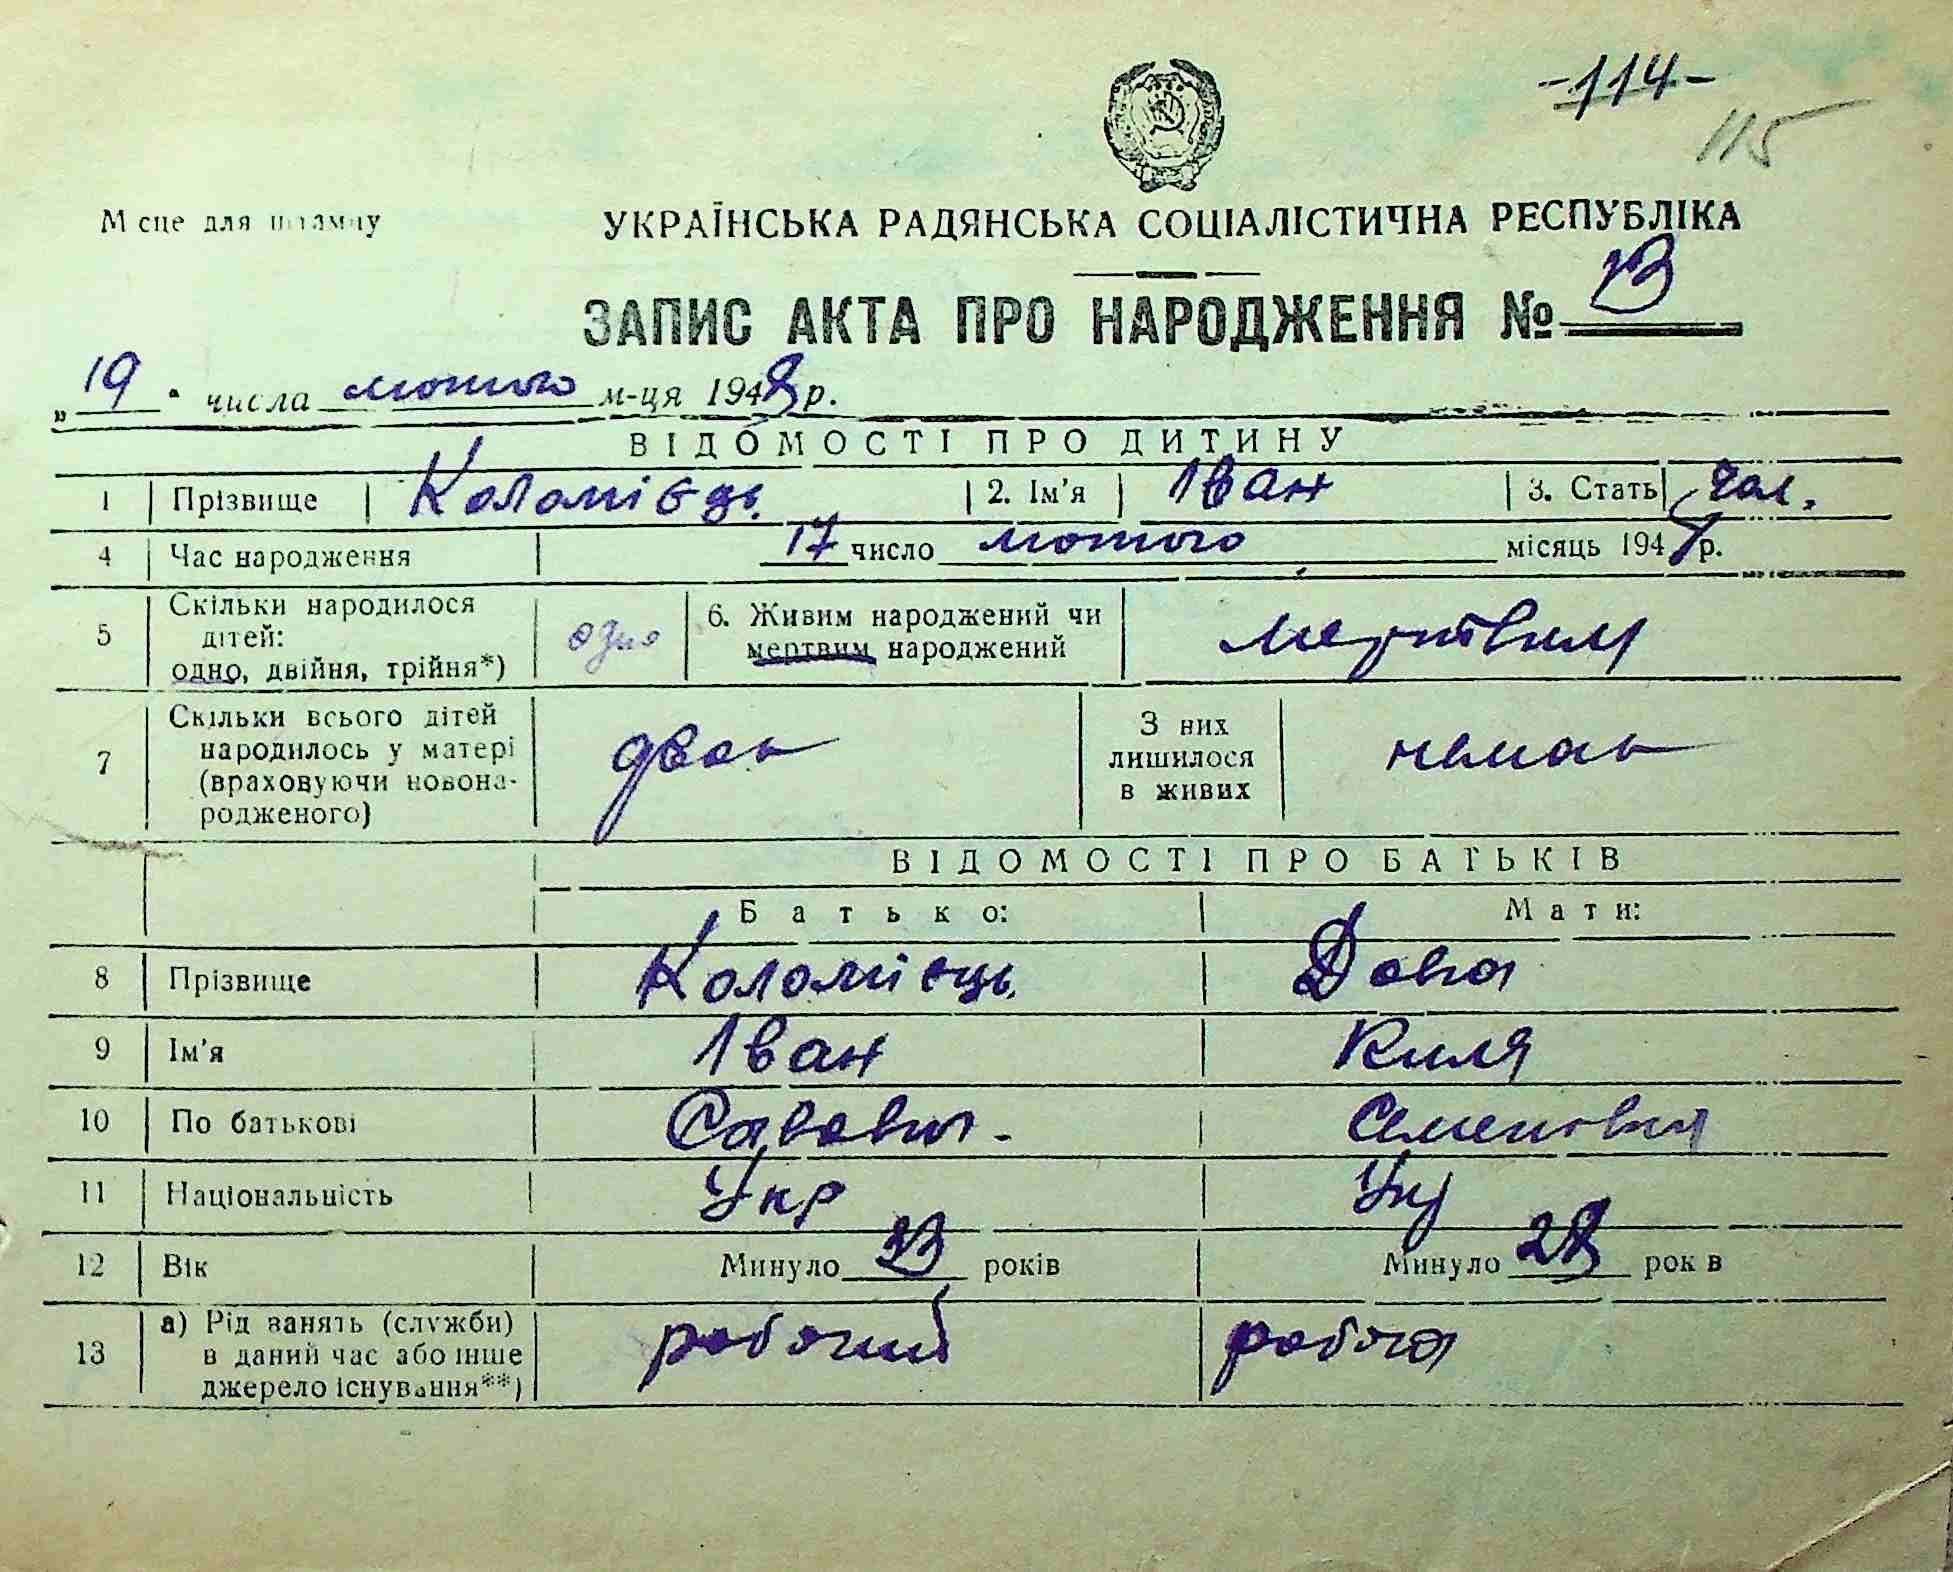 -114-
115
Місце для штампу
УКРАЇНСЬКА РАДЯНСЬКА СОЦІАЛІСТИЧНА РЕСПУБЛІКА
ЗАПИС АКТА ПРО НАРОДЖЕННЯ №
„19" числа лютого м-ця 1948 р.
ВІДОМОСТІ ПРО ДИТИНУ
1 Прізвище Коломієць. 2. Ім'я Іван 3. Стать чол.
4 Час народження 17 число лютого місяць 194 р.
5 Скільки народилося дітей: одно, двійня, трійня*) одно 6. Живим народжений чи мертвим народжений мертвим
7 Скільки всього дітей народилось у матері (враховуючи новонародженого) двоє З них лишилося в живих немає
ВІДОМОСТІ ПРО БАТЬКІВ
Батько: Мати:
8 Прізвище Коломієць.
9 Ім'я Іван Киля
10 По батькові Савович. Семенівна
11 Національність Укр Укр
12 Вік Минуло 33 років Минуло 28 років
13 а) Рід занять (служби) в даний час або інше джерело існування**) робочий робоча